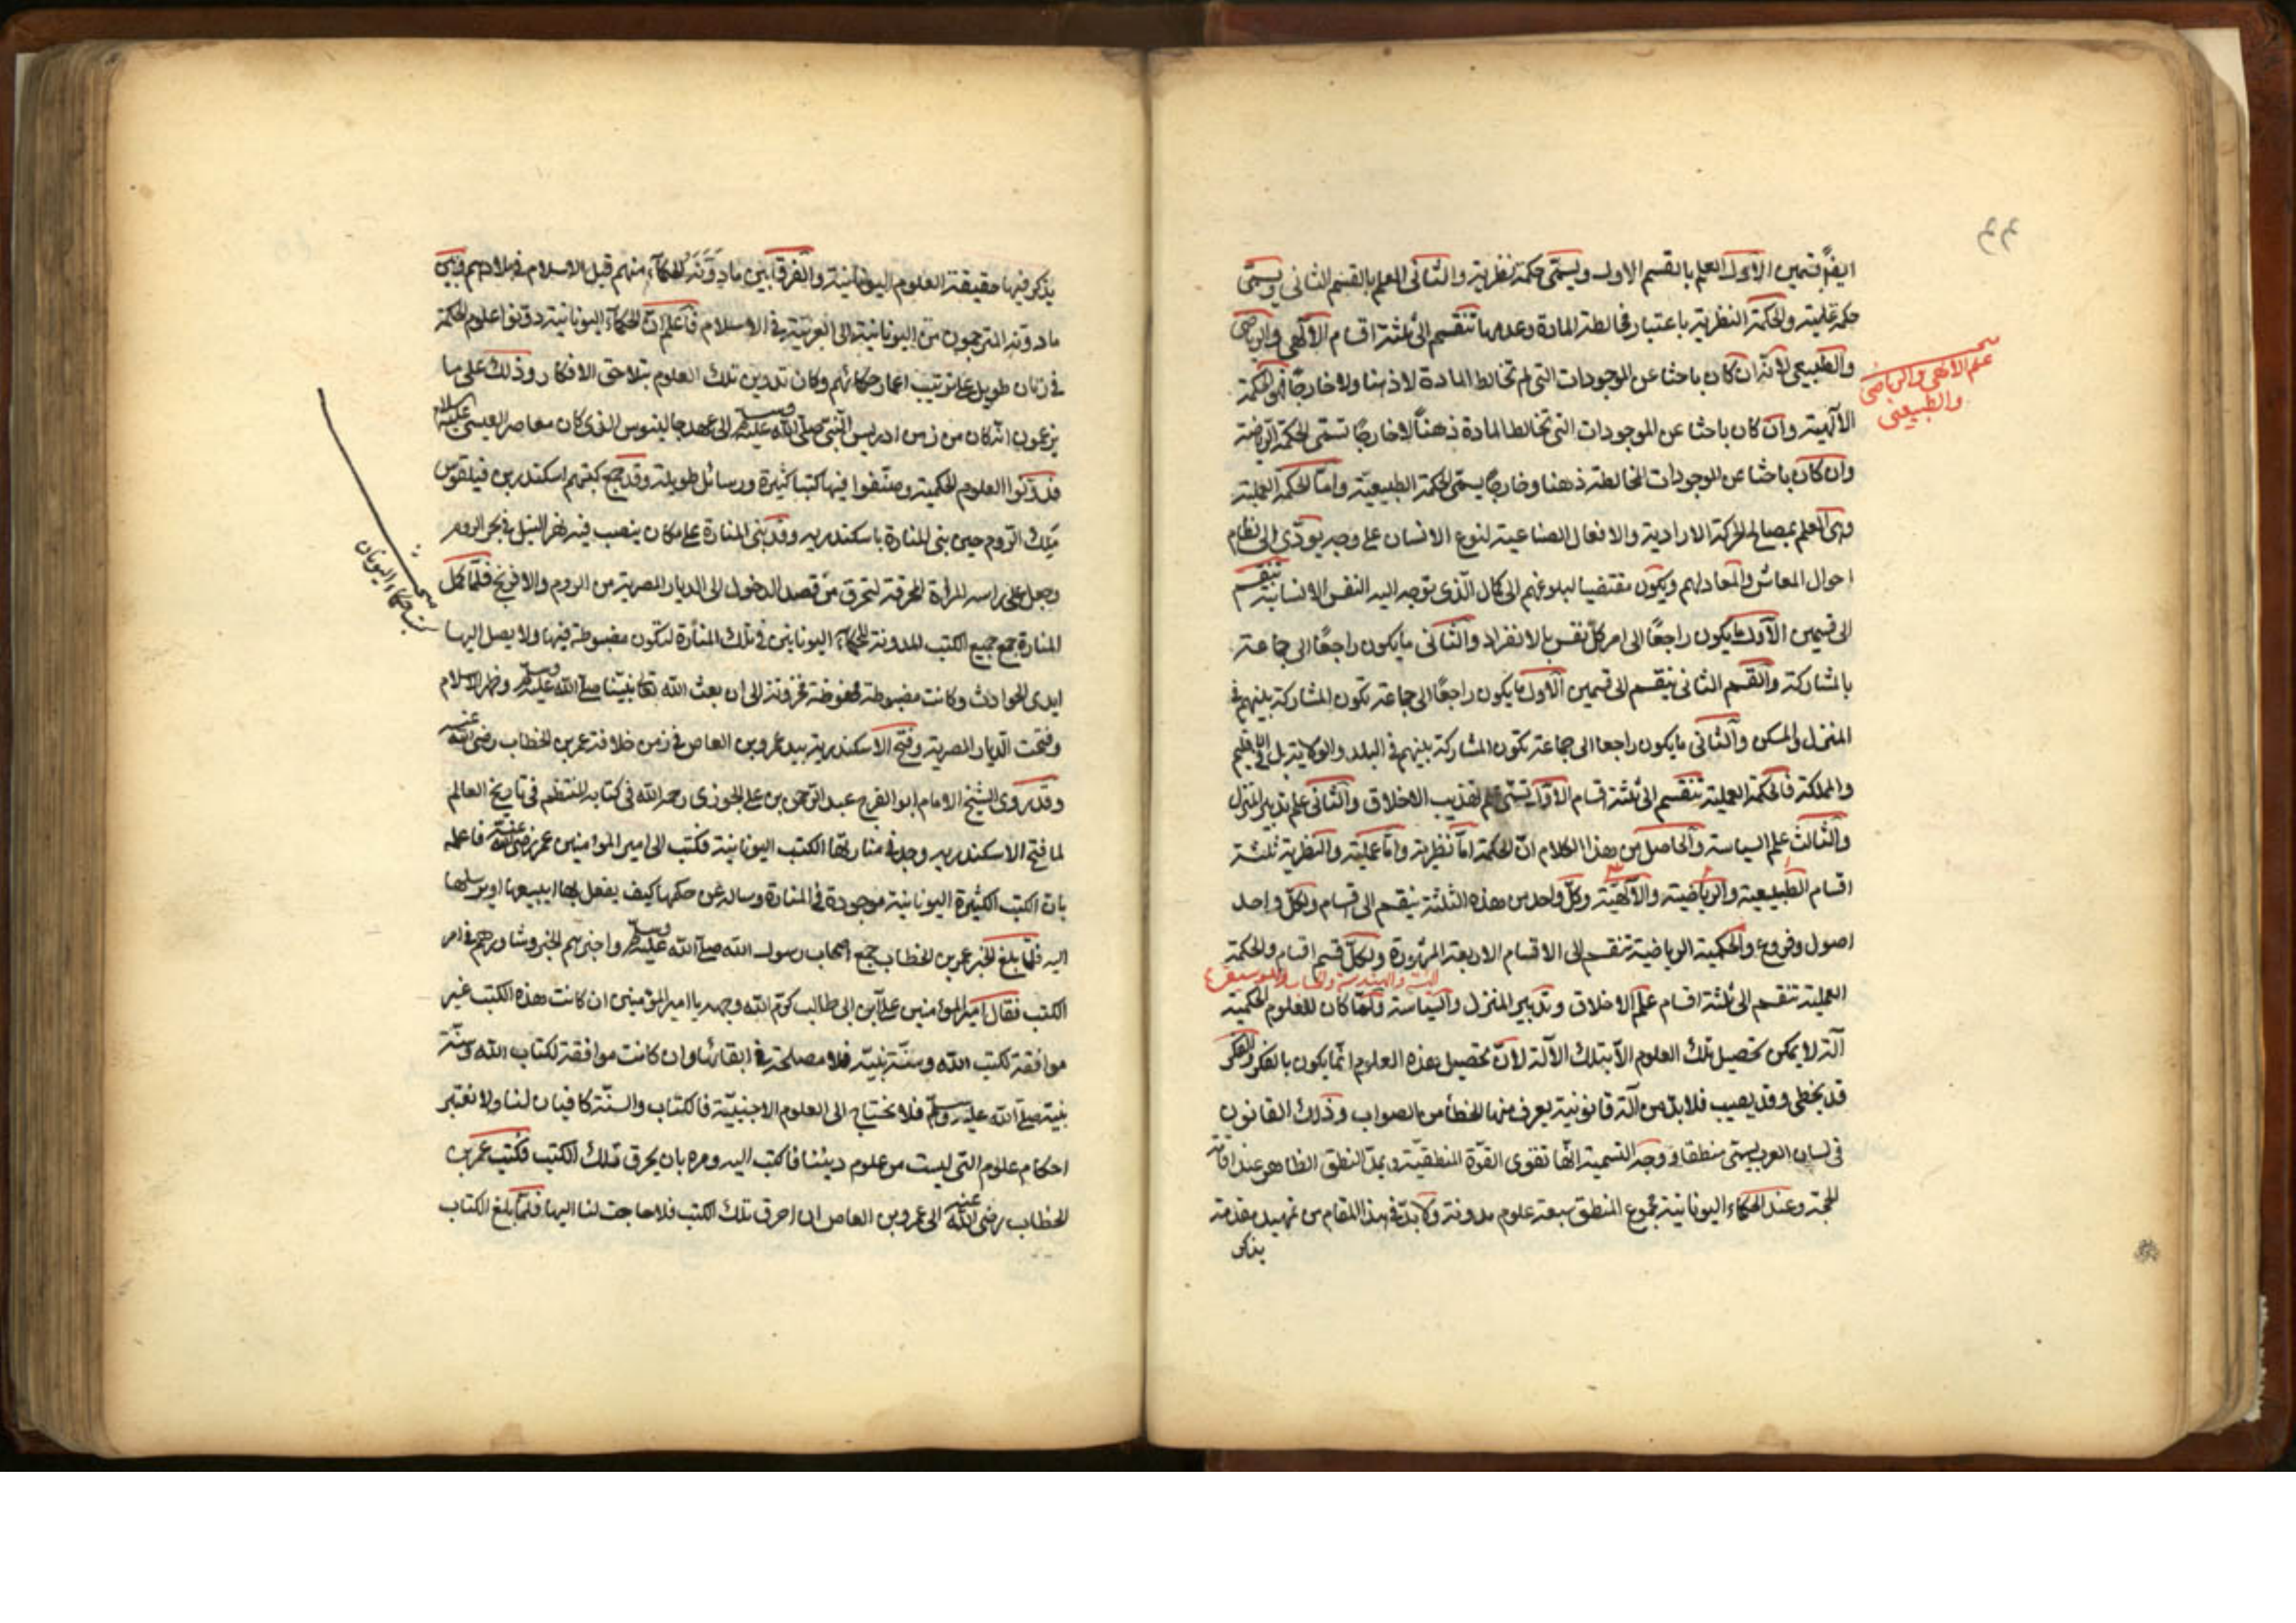 ٤٤
ايضًا قسمين الاول العلم بالقسم الاول ويسمّى حكمة نظرية والثانى العلم بالقسم الثانى ويسمّى
حكمة عملية والحكمة النظرية باعتبار مخالطة المادة وعدمها تنقسم الى ثلثة اقسام الالٓهى والرياضى
والطبيعى لانّه ان كان باحثا عن الموجودات التى لم تخالط المادة لا ذهنا ولا خارجًا فهى الحكمة
الالٓهية وان كان باحثا عن الموجودات التى تخالط المادة ذهنًا لا خارجًا تسمّى الحكمة الرياضية
وان كان باحثا عن الموجودات المخالطة ذهنا وخارجًا يسمّى الحكمة الطبيعيّة وامّا الحكمة العملية
وهى العلم بمصالح الحركة الارادية والافعال الصناعية لنوع الانسان على وجه يودّى الى نظام
احوال المعاش والمعاد لهم ويكون مقتضيا لبلوغهم الى كمال الّذى توجه اليه النفس الانسانية تنقسم
الى قسمين الاول ما يكون راجعًا الى امر كلّ نفس بالانفراد والثانى ما يكون راجعًا الى جماعة
بالمشاركة والقسم الثانى ينقسم الى قسمين الاول ما يكون راجعًا الى جماعة تكون المشاركة بينهم فى
المنزل والمسكن والثانى ما يكون راجعا الى جماعة تكون المشاركة بينهم فى البلد والولاية بل الاقليم
والمملكة فالحكمة العملية تنقسم الى ثلثة اقسام الاوّل تسمّى علم تهذيب الاخلاق والثانى علم تدبير المنزل
والثالث علم السياسة والحاصل من هذا الكلام انّ الحكمة امّا نظرية وامّا عملية والنظرية ثلثة
اقسام الطبيعية والرياضية والالٓهيّة وكلّ واحد من هذه الثلثة ينقسم الى اقسام ولكلّ واحد
اصول وفروع والحكمية الرياضية تنقسم الى الاقسام الاربعة المزبورة ولكلّ قسم اقسام والحكمة
الهيئة والهندسة والحساب والموسيقى ٤
العملية تنقسم الى ثلثة اقسام علم الاخلاق وتدبير المنزل والسياسة فلمّا كان للعلوم الحكمية
آلة لا يمكن تحصيل تلك العلوم الّا بتلك الآلة لانّ تحصيل هذه العلوم انّما يكون بالفكر والفكر
قد يخطى وقد يصيب فلا بدّ من آلة قانونية يعرف منها الخطأ من الصواب وذلك القانون
فى لسان العرب يسمّى منطقا ووجه التسمية انّها تقوى القوّة المنطقيّة ويمدّ النطق الظاهر عند اقامة
الحجة وعند الحكماء اليونانية مجموع المنطق سبعة علوم مدونة ولا بدّ فى هذا المقام من تمهيد مقدمة
يذكر
علم الالٓهى والرياضى
والطبيعى
يذكر فيها حقيقة العلوم اليونانية والفرق بين ما دوّنه الحكماء منهم قبل الاسلام فى بلادهم وبين
ما دونه المترجمون من اليونانية الى العربيّة فى الاسلام فاعلم انّ الحكماء اليونانية دوّنوا علوم الحكمة
فى زمان طويل على ترتيب اعمار حكمائهم وكان تدوين تلك العلوم بتلاحق الافكار وذلك على ما
يزعمون انّه كان من زمن ادريس النّبى صلّى الله عليه وسلم الى عهد جالينوس الذى كان معاصر العيسى عليه السلام
فدوّنوا العلوم الحكمية وصنّفوا فيها كتبا كثيرة ورسائل طويلة وقد جمع كتبهم اسكندر بن فيلقوس
ملك الروم حين بنى المنارة باسكندريه وقد بنى المنارة على مكان ينصب فيه نهر النيل فى بحر الروم
وجعل على راسه المراة المحرقة لتحرق من قصد الدخول الى الديار المصرية من الروم والافرنج فلمّا كمل
المنارة جمع جميع الكتب المدونة للحكماء اليونانين فى تلك المنارة لتكون مضبوطة فيها ولا يصل اليها
ايدى الحوادث وكانت مضبوطة محفوظة مخزونة الى ان بعث الله تعا نبيّنا صلّى الله عليه وسلم وظهر الاسلام
وفتحت الديار المصرية وفتح الاسكندرية بيد عمرو بن العاص فى زمن خلافة عمر بن الخطاب رضى الله عنه
وقد روى الشيخ الامام ابو الفرج عبد الرّحمن بن على الجوزى رحمه الله فى كتابه المنتظم فى تاريخ العالم
لما فتح الاسكندريه وجد فى منارتها الكتب اليونانية فكتب الى امير المؤامنين عمر رضى الله عنه فاعلمه
بان الكتب الكثيرة اليونانية موجودة فى المنارة وساله عن حكمها كيف يفعل بها ايبيعها او يرسلها
اليه فلمّا بلغ الخبر عمر بن الخطاب جمع اصحاب رسول الله صلّى الله عليه وسلم واخبرهم الخبر وشاورهم فى امر
الكتب فقال امير المؤمنين على بن ابى طالب كرّم الله وجهه يا امير المؤمنين ان كانت هذه الكتب غير
موافقة لكتب الله وسنّة نبيّه فلا مصلحة فى ابقائها وان كانت موافقة لكتاب الله وسنّة
نبيه صلّى الله عليه وسلم فلا نحتاج الى العلوم الاجنبيّة فالكتاب والسنّة كافيان لنا ولا نعتبر
احكام علوم التى ليست من علوم ديننا فاكتب اليه ومره بان يحرق تلك الكتب فكتب عمر بن
الخطاب رضى الله عنه الى عمرو بن العاص ان احرق تلك الكتب فلا حاجت لنا اليها فلمّا بلغ الكتاب
حكماء اليونان